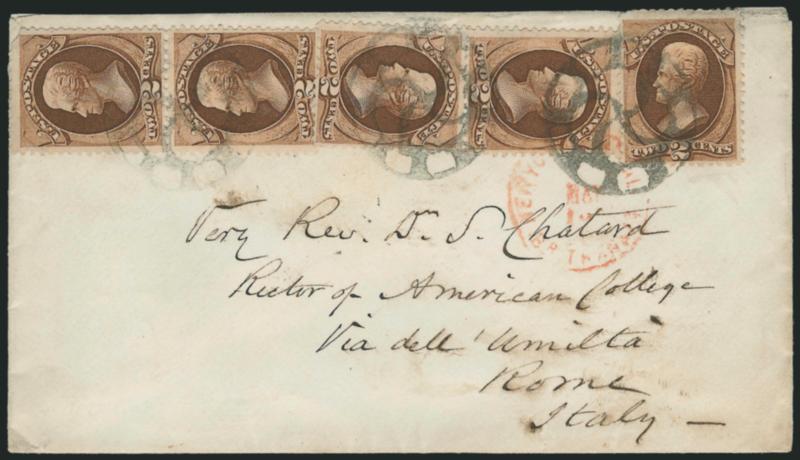 U.S. POSTAGE
TWO 2 CENTS
U.S. POSTAGE
TWO 2 CENTS
U.S. POSTAGE
TWO 2 CENTS
U.S. POSTAGE
TWO 2 CENTS
U.S. POSTAGE
TWO 2 CENTS
NEW YO
Very Rev. Dr. S. Chatard
Rector of American College
Via dell' Umiltà
Rome
Italy —